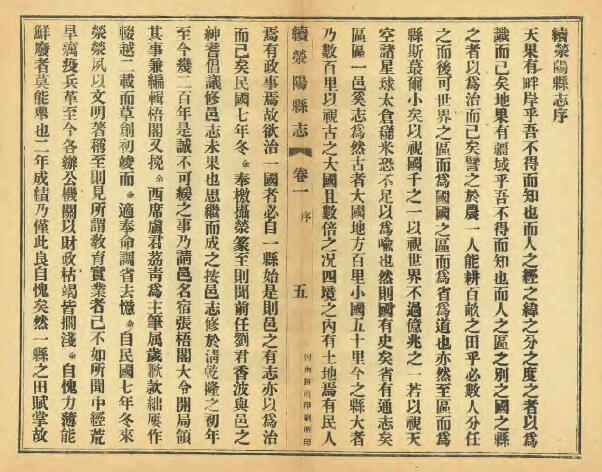 續滎陽縣志序
天果有畔岸乎吾不得而知也而人之經之緯之分之度之者以爲
識而已矣地果有疆域乎吾不得而知也而人之區之別之國之縣
之者以爲治而已矣譬之於農一人能耕百畝之田乎必數人分任
之而後可世界之區而爲國國之區而爲省爲道也亦然至區而爲
縣斯蕞爾小矣以視國千之一以視世界不過億兆之一若以視天
空諸星球太倉稊米恐不足以爲喩也然則國有史矣省有通志矣
區區一邑奚志爲然古者大國地方百里小國五十里今之縣大者
乃數百里以視古之大國且數倍之况四境之內有土地焉有民人
續滎陽縣志
卷一
序
五
河南商務印刷所印
焉有政事焉故欲治一國者必自一縣始是則邑之有志亦以爲治
而已矣民國七年冬余奉檄攝滎篆至則聞前任劉君香波與邑之
紳耆倡議修邑志未果也思繼而成之按邑志修於淸乾隆之初年
至今幾二百年是誠不可緩之事乃請邑名宿張梧閣大令開局領
其事兼編輯梧閣又挽余西席盧君荔靑爲主筆屬歲歉款絀屢作
輟越二載而草創初竣而余適奉命調省去憶余自民國七年冬來
滎滎夙以文明著稱至則見所謂敎育實業者已不如所聞中經荒
旱癘疫兵革至今各辦公機關以財政枯竭皆擱淺余自愧力薄能
鮮廢者莫能舉也二年成績乃僅此良自愧矣然一縣之田賦掌故